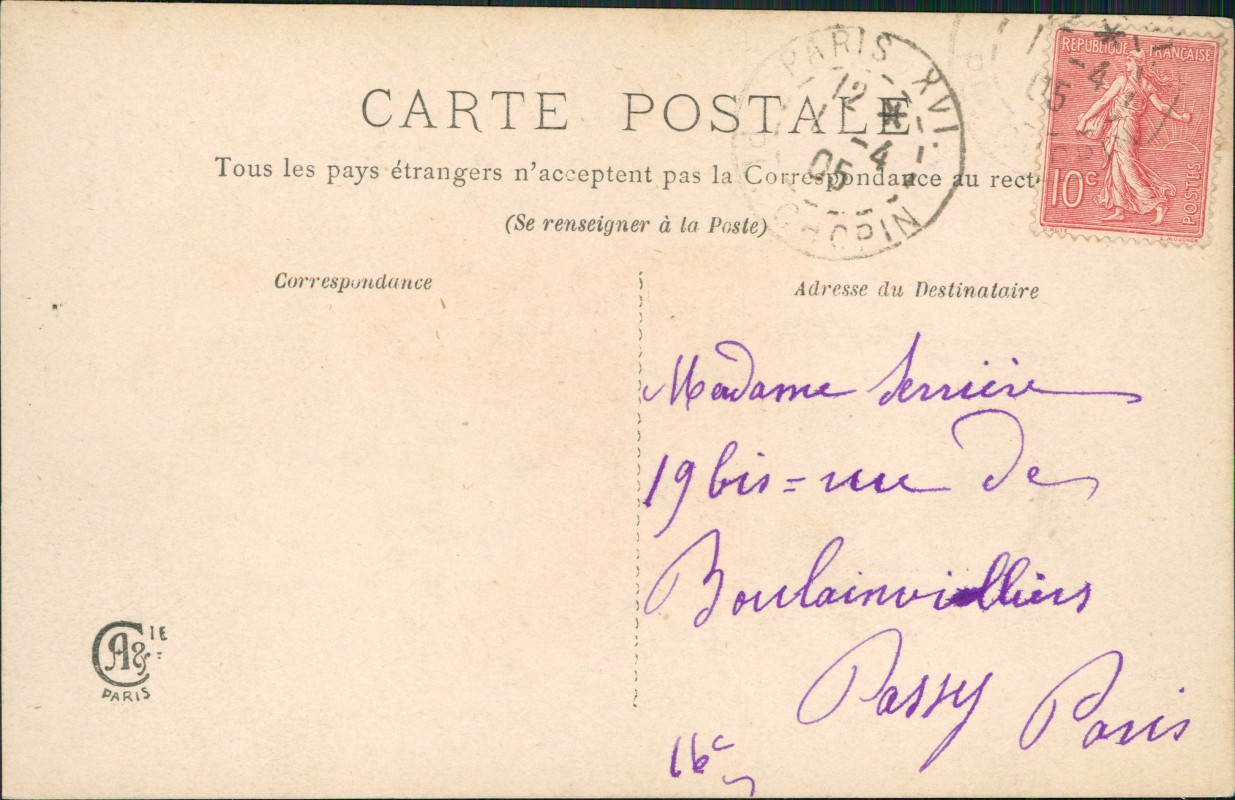 CARTE POSTALE
Tous les pays étrangers n'acceptent pas la Correspondance au rect
(Se renseigner à la Poste)
Correspondance
Adresse du Destinataire
PARIS XVI.
12
* -4
05
CHOPIN
* -4
05
RÉPUBLIQUE FRANÇAISE
10c
POSTES
Madame Serrière
19 bis = rue de
Boulainvilliers
Passy Paris
16e
CA & IE
PARIS